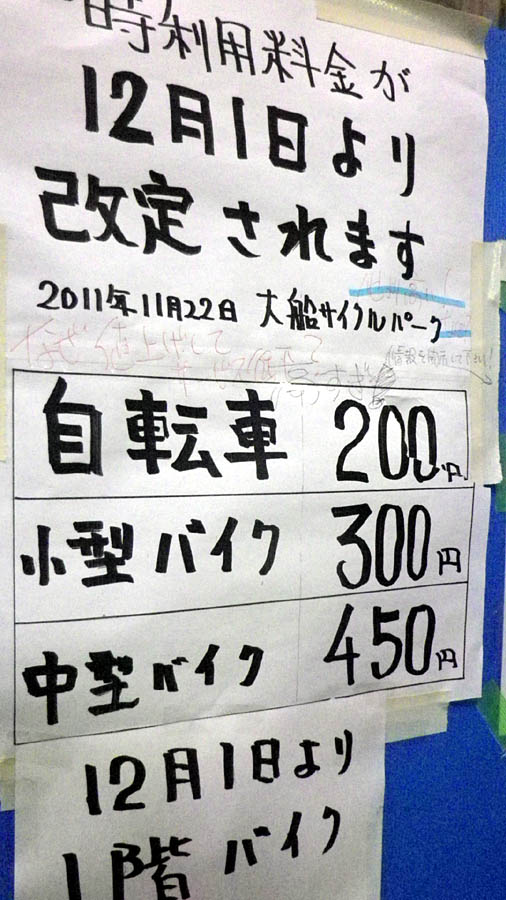 時利用料金が
12月1日より
改定されます
2011年11月22日 大船サイクルパーク
なぜ値上げして
情報を開示して下さい!
自転車 200円
小型バイク 300円
中型バイク 450円
12月1日より
1階バイク